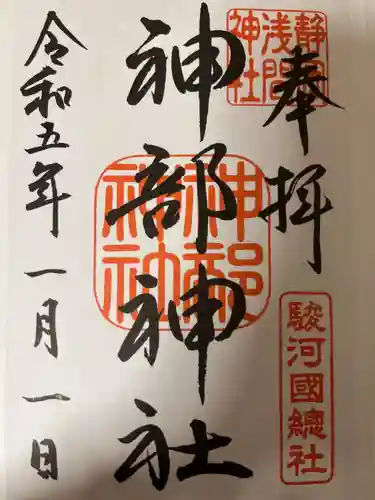 奉拝
静岡浅間神社
駿河國總社
神部神社
神部神社
令和五年一月一日